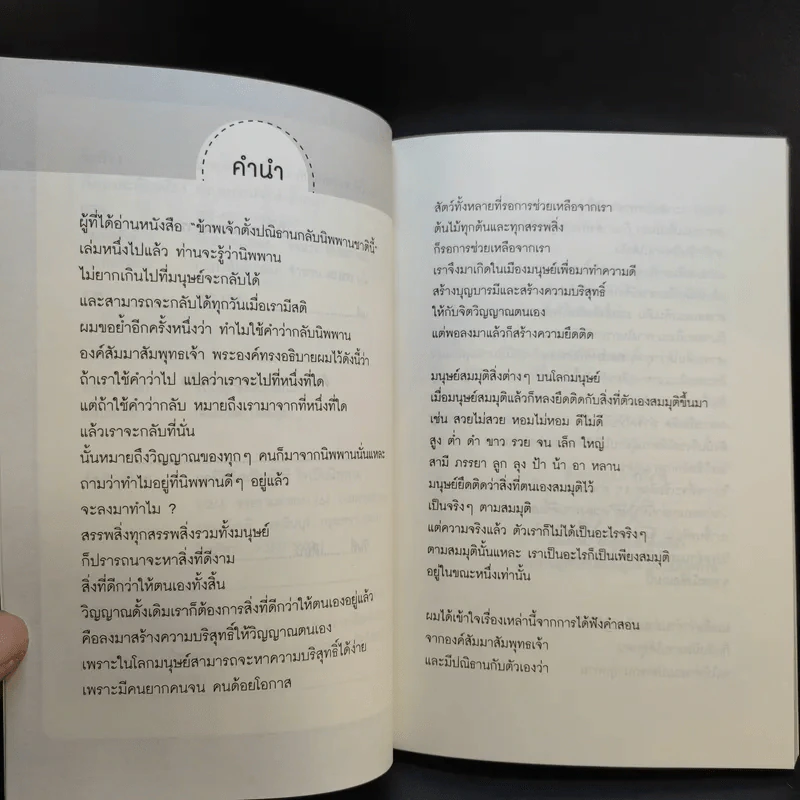 คำนำ
ผู้ที่ได้อ่านหนังสือ "ข้าพเจ้าตั้งปณิธานกลับนิพพานชาตินี้"
เล่มหนึ่งไปแล้ว ท่านจะรู้ว่านิพพาน
ไม่ยากเกินไปที่มนุษย์จะกลับได้
และสามารถจะกลับได้ทุกวันเมื่อเรามีสติ
ผมขอย้ำอีกครั้งหนึ่งว่า ทำไมใช้คำว่ากลับนิพพาน
องค์สัมมาสัมพุทธเจ้า พระองค์ทรงอธิบายผมไว้ดังนี้ว่า
ถ้าเราใช้คำว่าไป แปลว่าเราจะไปที่หนึ่งที่ใด
แต่ถ้าใช้คำว่ากลับ หมายถึงเรามาจากที่หนึ่งที่ใด
แล้วเราจะกลับที่นั่น
นั้นหมายถึงวิญญาณของทุกๆ คนก็มาจากนิพพานนั่นแหละ
ถามว่าทำไมอยู่ที่นิพพานดีๆ อยู่แล้ว
จะลงมาทำไม ?
สรรพสิ่งทุกสรรพสิ่งรวมทั้งมนุษย์
ก็ปรารถนาจะหาสิ่งที่ดีงาม
สิ่งที่ดีกว่าให้ตนเองทั้งสิ้น
วิญญาณดั้งเดิมเราก็ต้องการสิ่งที่ดีกว่าให้ตนเองอยู่แล้ว
คือลงมาสร้างความบริสุทธิ์ให้วิญญาณตนเอง
เพราะในโลกมนุษย์สามารถจะหาความบริสุทธิ์ได้ง่าย
เพราะมีคนยากคนจน คนด้อยโอกาส
สัตว์ทั้งหลายที่รอการช่วยเหลือจากเรา
ต้นไม้ทุกต้นและทุกสรรพสิ่ง
ก็รอการช่วยเหลือจากเรา
เราจึงมาเกิดในเมืองมนุษย์เพื่อมาทำความดี
สร้างบุญบารมีและสร้างความบริสุทธิ์
ให้กับจิตวิญญาณตนเอง
แต่พอลงมาแล้วก็สร้างความยึดติด
มนุษย์สมมุติสิ่งต่างๆ บนโลกมนุษย์
เมื่อมนุษย์สมมุติแล้วก็หลงยึดติดกับสิ่งที่ตัวเองสมมุติขึ้นมา
เช่น สวยไม่สวย หอมไม่หอม ดีไม่ดี
สูง ต่ำ ดำ ขาว รวย จน เล็ก ใหญ่
สามี ภรรยา ลูก ลุง ป้า น้า อา หลาน
มนุษย์ยึดติดว่าสิ่งที่ตนเองสมมุติไว้
เป็นจริงๆ ตามสมมุติ
แต่ความจริงแล้ว ตัวเราก็ไม่ได้เป็นอะไรจริงๆ
ตามสมมุตินั้นแหละ เราเป็นอะไรก็เป็นเพียงสมมุติ
อยู่ในขณะหนึ่งเท่านั้น
ผมได้เข้าใจเรื่องเหล่านี้จากการได้ฟังคำสอน
จากองค์สัมมาสัมพุทธเจ้า
และมีปณิธานกับตัวเองว่า